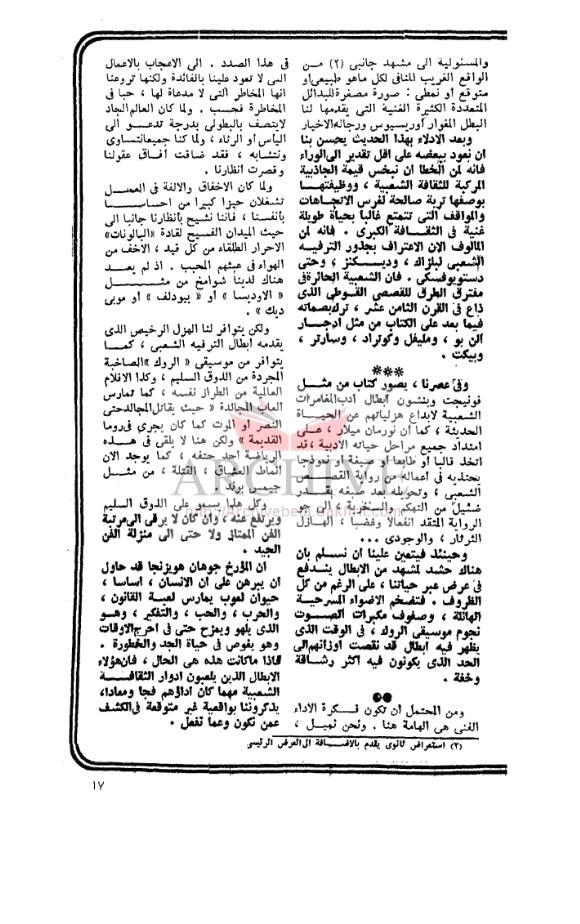 والمسئولية الى مشهد جانبي (٢) مــن
الواقع الغريب المنافى لكل ماهو طبيعى او
متوقع او نمطى : صورة مصغرة للبدائل
المتعددة الكثيرة الغنية التى يقدمها لنا
البطل المغوار أوديسيوس ورجاله الاخيار
وبعد الادلاء بهذا الحديث يحسن بنا
ان نعود ببعضه على اقل تقدير الى الوراء
فانه لمن الخطأ ان نبخس قيمة الجاذبية
المركبة للثقافة الشعبية ، ووظيفتهــا
بوصفها تربة صالحة لغرس الاتجاهات
والمواقف التى تتمتع غالبا بحياة طويلة
غنية فى الثقـافة الكبرى . فانه لمن
المألوف الان الاعتراف بجذور الترفيه
الشعبى لبلزاك ، وديـكنز ، وحتى
دستويوفسكى . فان الشعبية الحائرة فى
مفترق الطرق للقصصى القــوطى الذى
ذاع فى القرن الثامن عشر ، ترك بصماته
فيما بعد على الكتاب من مثل ادجـار
الن بو ، وملفيل وكونراد ، وسارتر ،
وبيكت .
***
وفى عصرنا ، يصور كتاب من مثــل
فونيجت وبنشون أبطال ادب المغامرات
الشعبية لابداع هزلياتهم عن الحيــاة
الحديثة ، كما أن نورمان ميلار ، عـلى
امتداد جميع مراحل حياته الادبية ، قد
اتخذ قالبا او طابعا او صيغة او نموذجا
يحتذيه فى أعماله من رواية القصــص
الشعبى ، وتحويله بعد صبغه بقــدر
ضئيل من التهكم والسخرية ، الى جو
الرواية المتقد انفعالا وغضبا ، الهـازل
الثرثار ، والوجودى ...
وحينئذ فيتعين علينا ان نسلم بان
هناك حشد لمشهد من الابطال ينـدفع
فى عرض عبر حياتنا ، على الرغم من كل
الظروف . فتضخم الاضواء المسرحية
الهائلة ، وصفوف مكبرات الصــوت
نجوم موسيقى الروك ، فى الوقت الذى
يظهر فيه أبطال قد نقصت أوزانهم الى
الحد الذى يكونون فيه اكثر رشـاقة
وخفة .
ومن المحتمل أن تكون فـكرة الأداء
الفنى هى الهامة هنا . ونحن نميل ،
(٢) استعراض ثانوى يقدم بالاضـافة الى العرض الرئيسى
فى هذا الصدد . الى الاعجاب بالاعمال
التى لا تعود علينا بالفائدة ولكنها تروعنا
انها المخاطر التى لا مدعاة لها ، حبا فى
المخاطرة فحسب . ولما كان العالم الجاد
لايتصف بالبطولى بدرجة تدعـو الى
اليأس أو الرثاء ، ولما كنا جميعا نتساوى
ونتشابه ، فقد ضاقت آفـاق عقولنا
وقصرت انظارنا .
ولما كان الاخفاق والالفة فى العمــل
تشغلان حيزا كبيرا من احساســنا
بأنفسنا ، فاننا نشيح بأنظارنا جانبا الى
حيث الميدان الفسيح لقادة «البالونات»
الاحرار الطلقاء من كل قيد ، الأخف من
الهواء فى عبثهم المحبب . اذ لم يعــد
هناك لدينا شوامخ من مثـــــل
« الاوديسا » أو « بيودلف » او موبى
ديك » .
ولكن يتوافر لنا الهزل الرخيص الذى
يقدمه ابطال الترفيه الشعبى ، كمــا
يتوافر من موسيقى « الروك »الصاخبة
المجردة من الذوق السليم ، وكذا الافلام
العالمية من الطراز نفسه ، كما تمارس
العاب المجالدة « حيث يقاتل المجالد حتى
النصر أو الموت كما كان يجرى فى روما
القديمة » ولكن هنا لا يلقى فى هــذه
الرياضة احد حتفه ، كما يوجد الان
أنماط العشـاق ، القتلة ، من مثــل
جيمس بوند .
وكل هذا يسمو على الذوق السليم
ويرتفع عنه ، وان كان لا يرقى الى مرتبة
الفن الممتاز ولا حتى الى منزلة الفن
الجيد .
ان المؤرخ جوهان هويزنجا قد حاول
ان يبرهن على ان الانسان ، اساسا ،
حيوان لعوب يمارس لعبة القانون ،
والحرب ، والحب ، والتفكير ، وهــو
الذى يلهو ويمزح حتى فى احرج الاوقات
وهو يغوص فى حياة الجد والخطورة .
فاذا ماكانت هذه هى الحال ، فان هؤلاء
الابطال الذين يلعبون ادوار الثقافـــة
الشعبية مهما كان اداؤهم فجا ومعادا،
يذكروننا بواقعية غير متوقعة فى الكشف
عمن نكون وعما نفعل .
١٧
ARCHIVE